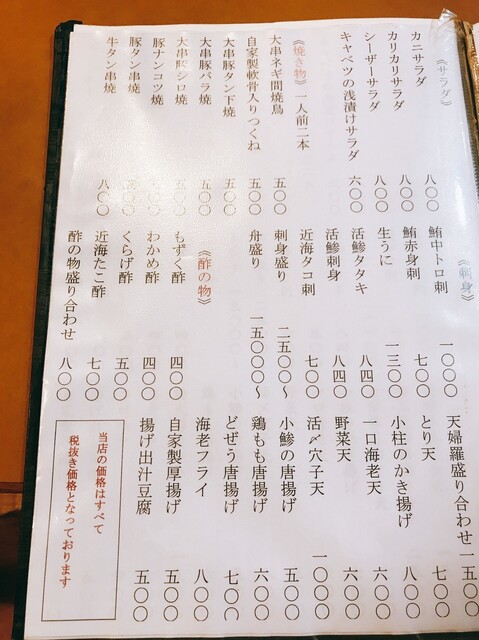 《サラダ》
カニサラダ 八〇〇
カリカリサラダ 八〇〇
シーザーサラダ 八〇〇
キャベツの浅漬けサラダ 六〇〇
《焼き物》一人前二本
大串ネギ間焼鳥 五〇〇
自家製軟骨入りつくね 五〇〇
大串豚タン下焼 五〇〇
大串豚バラ焼 五〇〇
大串豚シロ焼 五〇〇
豚ナンコツ焼
豚タン串焼
牛タン串焼 八〇〇
《刺身》
鮪中トロ刺 一〇〇〇
鮪赤身刺 七〇〇
生うに 一三〇〇
活鯵タタキ 八四〇
活鯵刺身 八四〇
近海タコ刺 七〇〇
刺身盛り 二五〇〇〜
舟盛り 一五〇〇〇〜
《酢の物》
もずく酢 四〇〇
わかめ酢 四〇〇
くらげ酢 五〇〇
近海たこ酢 七〇〇
酢の物盛り合わせ 八〇〇
天婦羅盛り合わせ 一五〇〇
とり天 七〇〇
小柱のかき揚げ 八〇〇
一口海老天 六〇〇
野菜天 六〇〇
活〆穴子天 一〇〇〇
小鯵の唐揚げ 五〇〇
鶏もも唐揚げ 六〇〇
どぜう唐揚げ 七〇〇
海老フライ 八〇〇
自家製厚揚げ 五〇〇
揚げ出汁豆腐 五〇〇
当店の価格はすべて
税抜き価格となっております